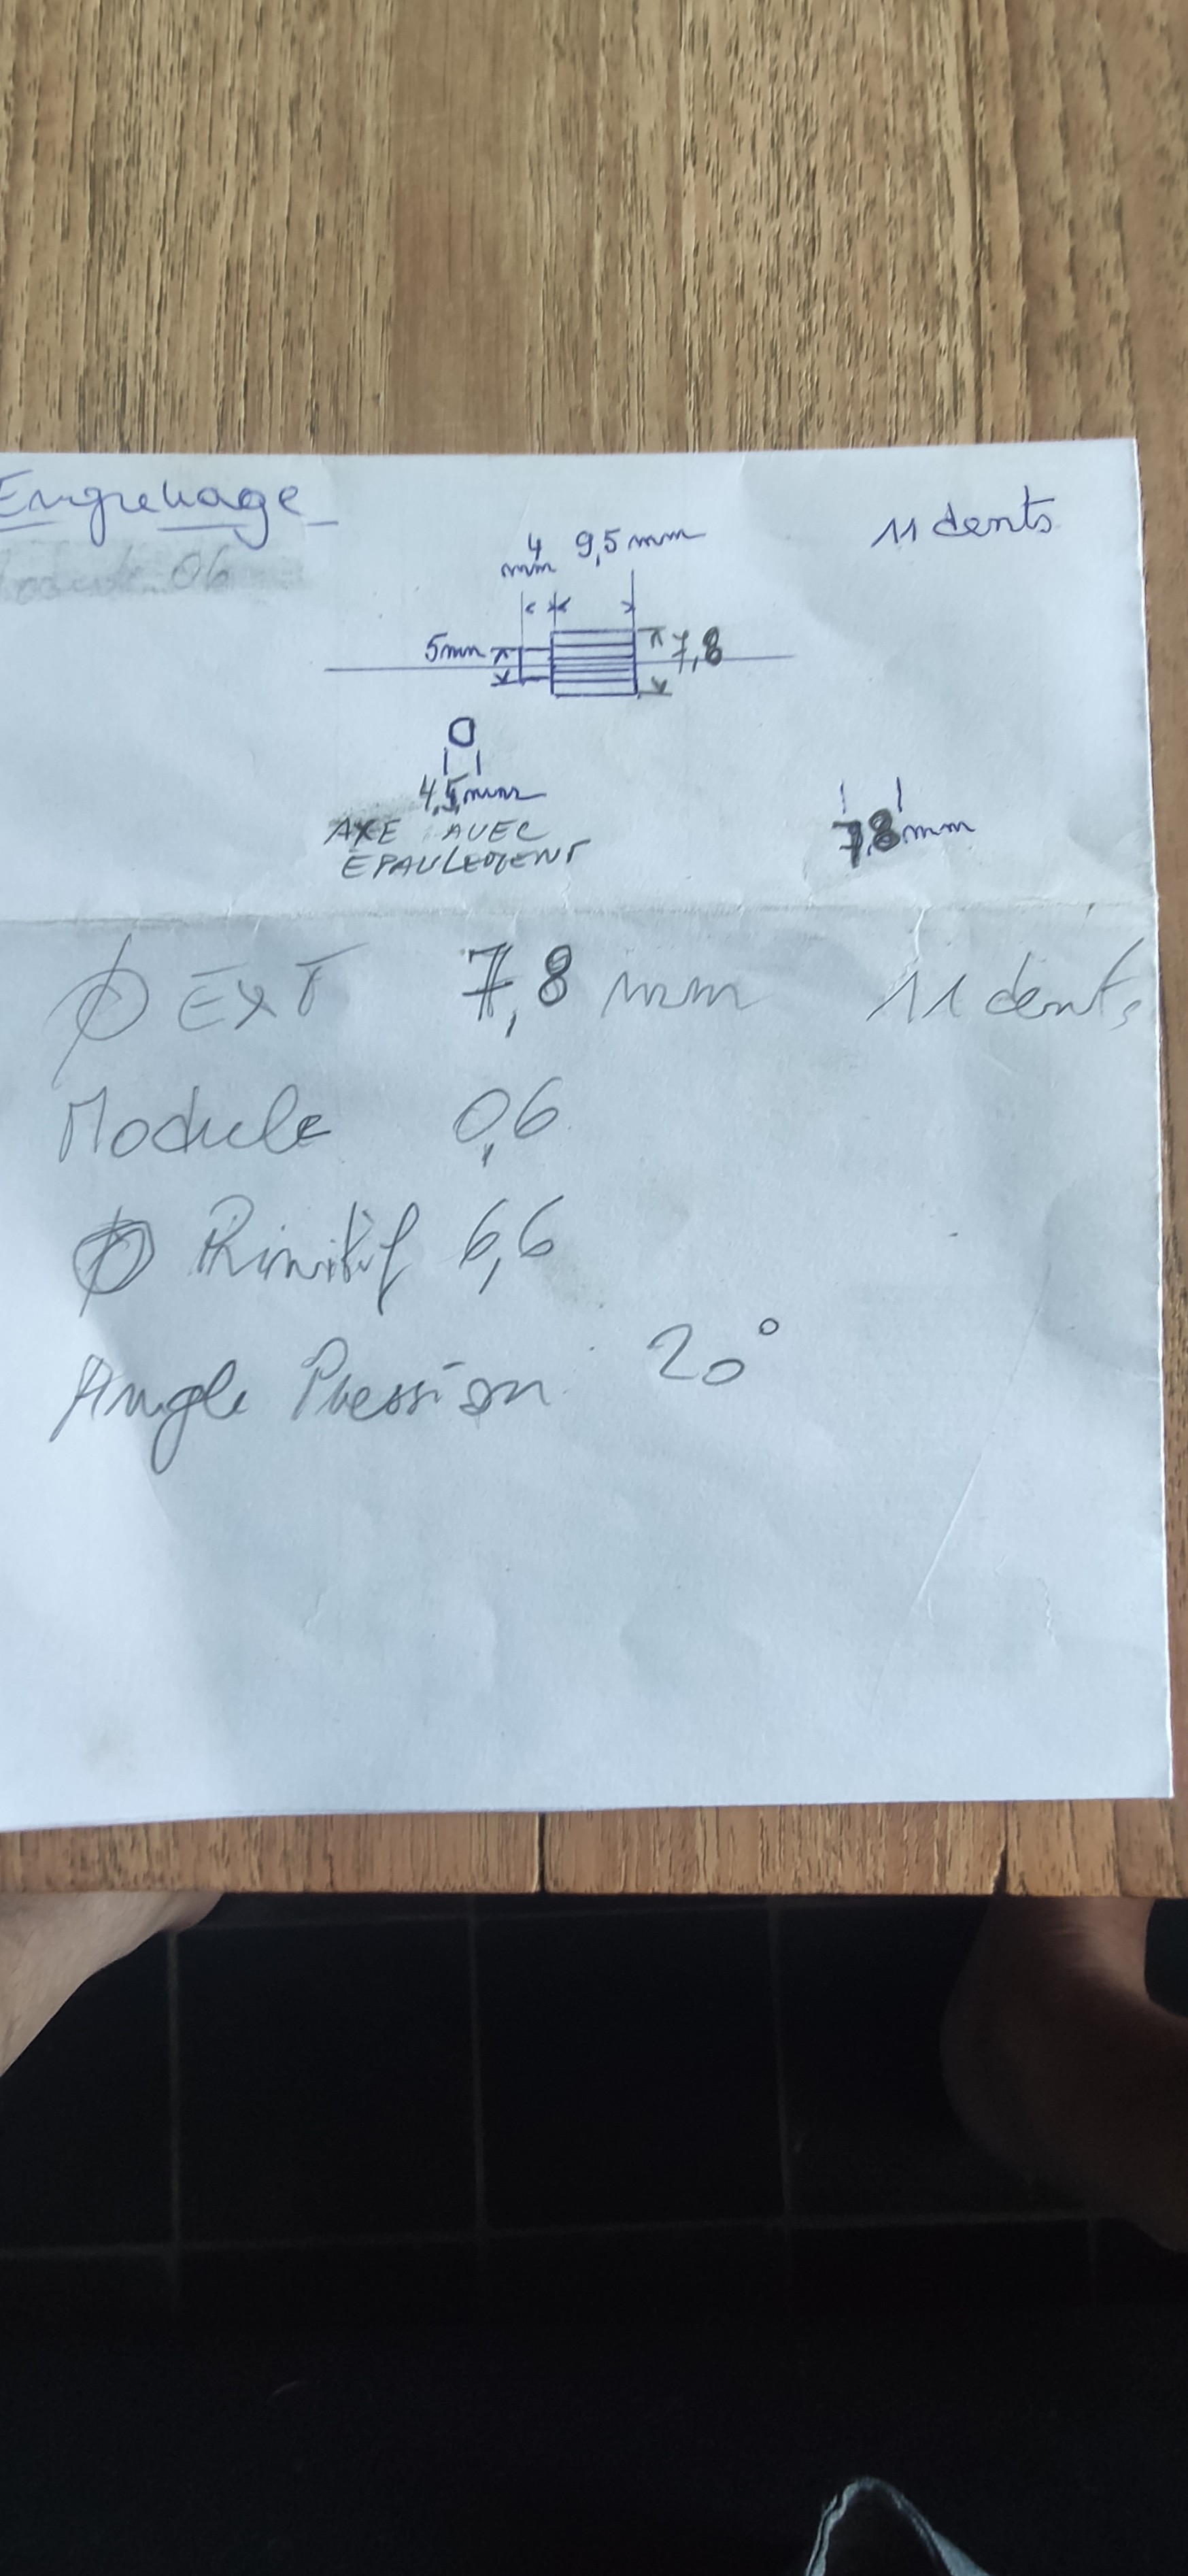 Engrenage
11 dents
4 mm 9,5 mm
5mm
7,8
4,5mm
7,8mm
AXE AVEC
EPAULEMENT
Ø EXT 7,8 mm 11 dents
Module 0,6
Ø Primitif 6,6
Angle Pression 20°